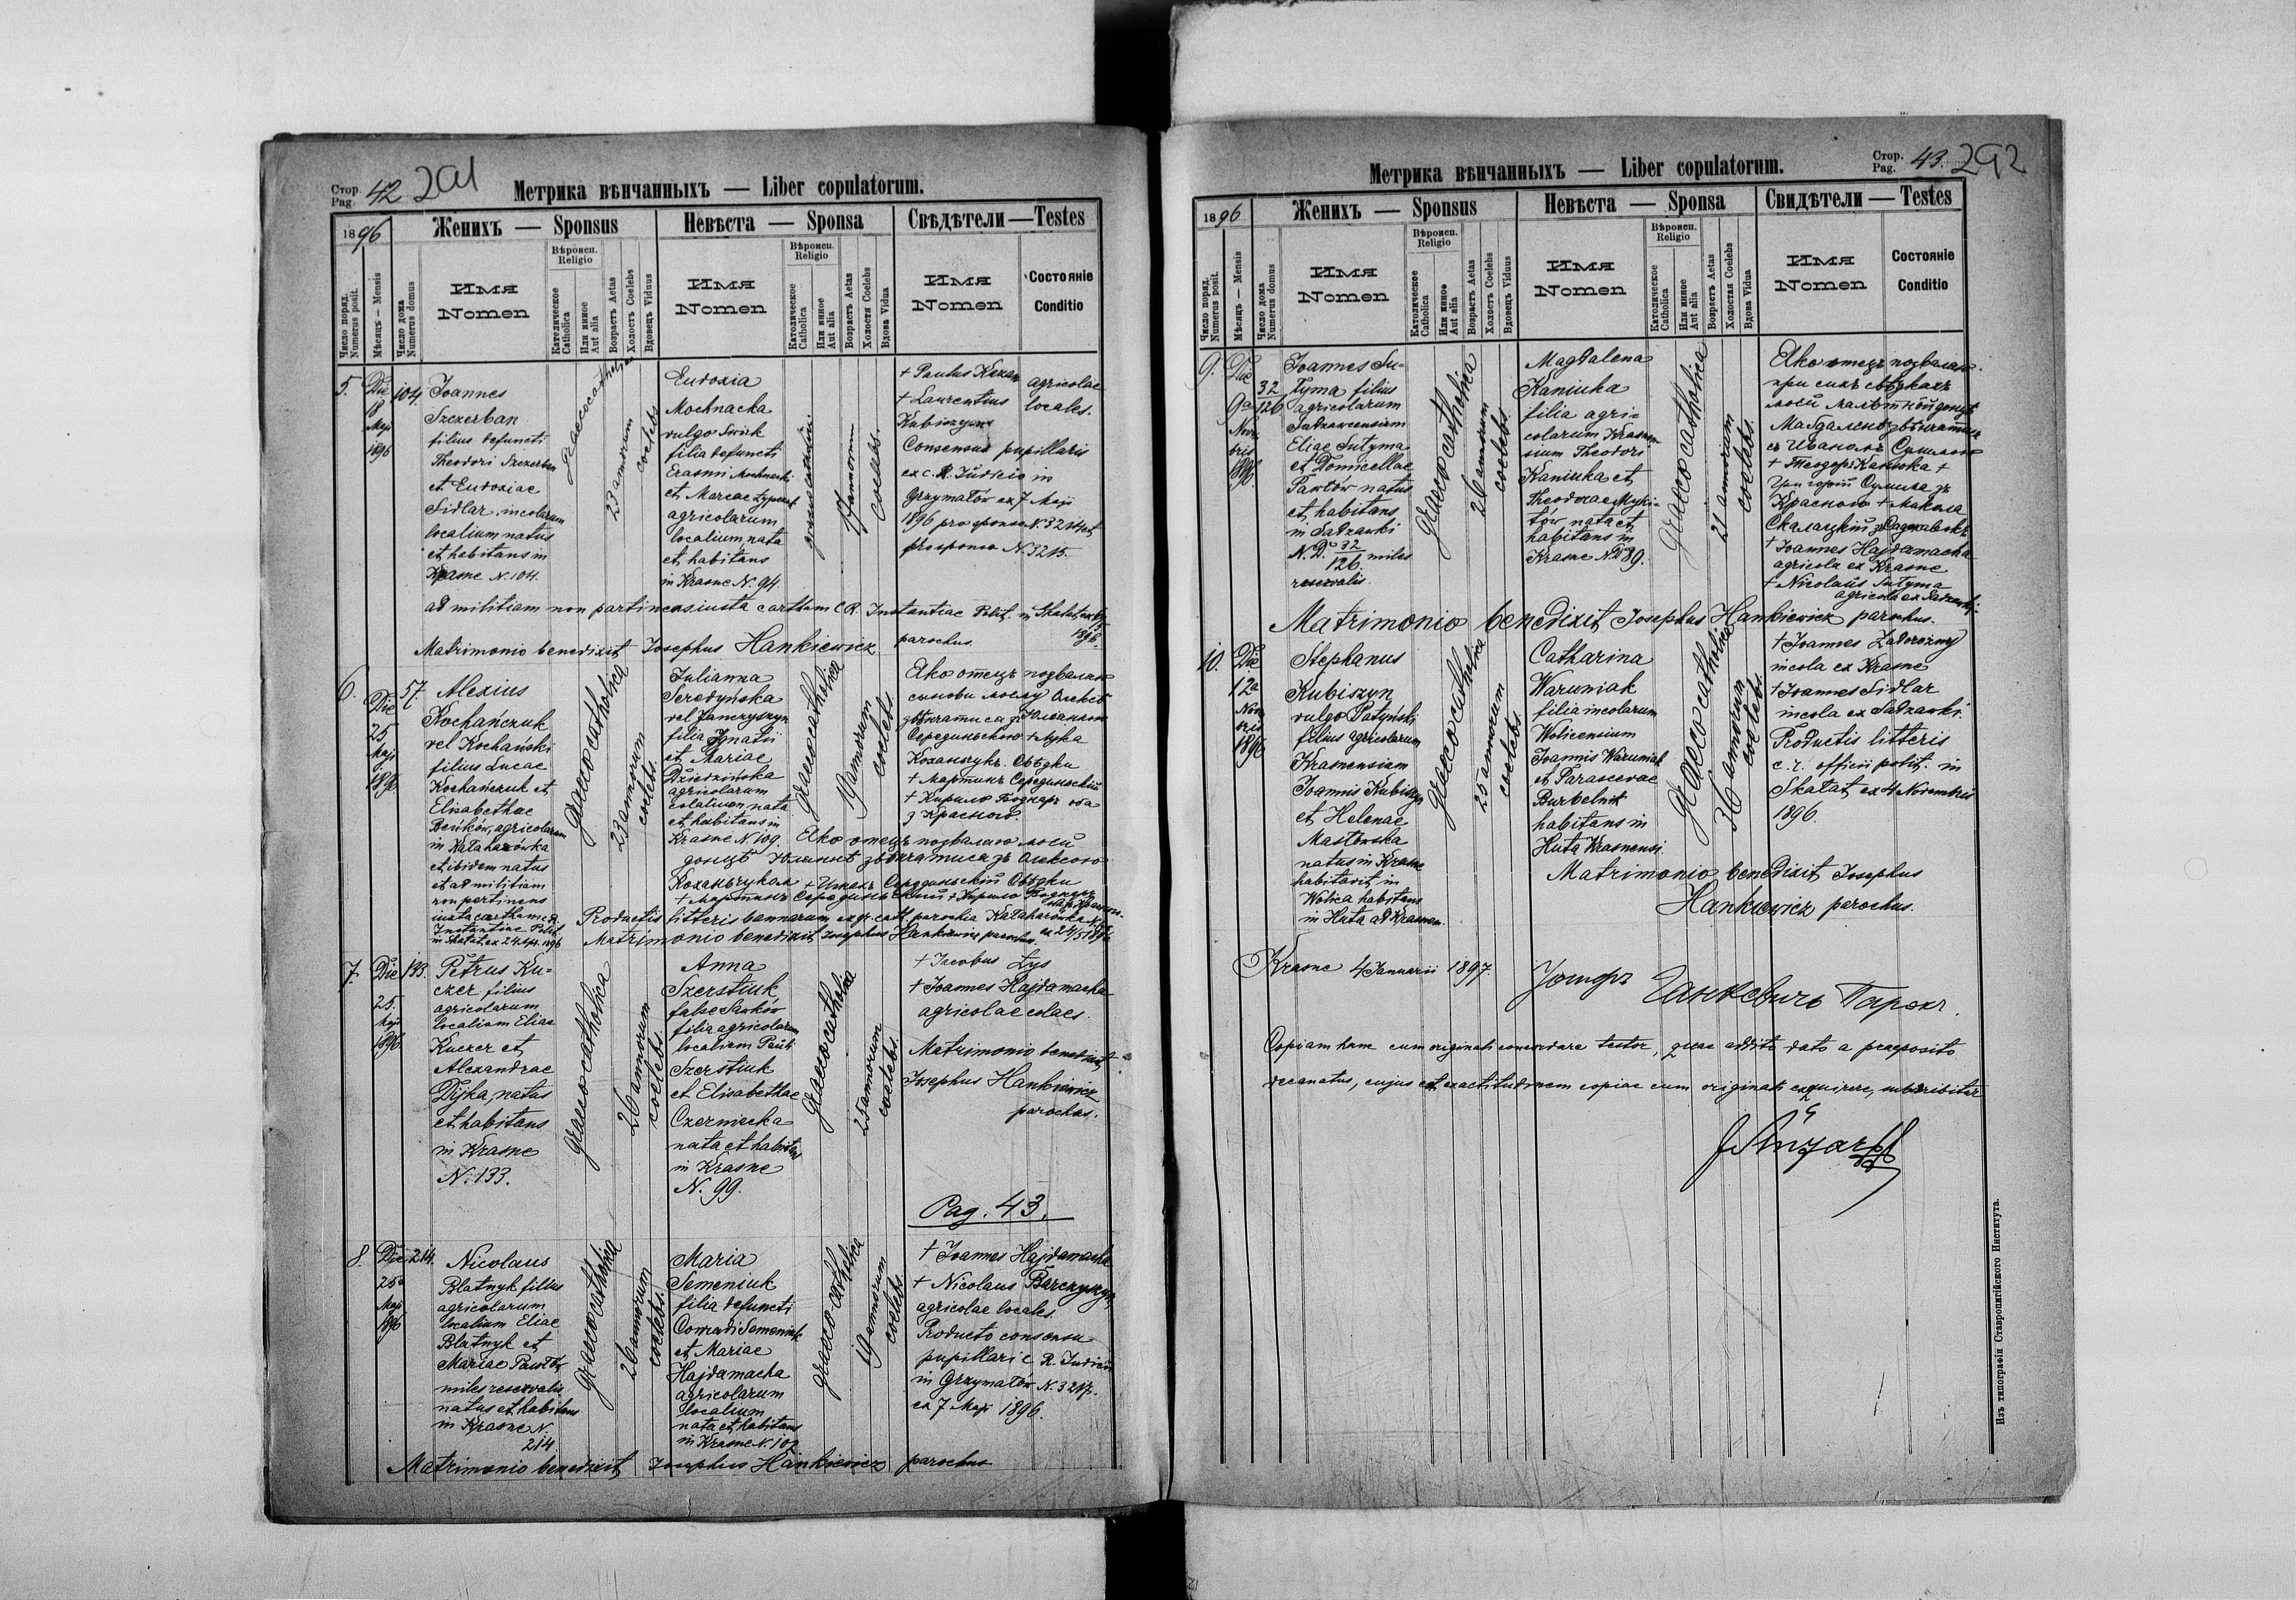 Стор. Pag. 42 291
Метрика вѣнчанныхъ — Liber copulatorum.
1896
Женихъ — Sponsus
Невѣста — Sponsa
Свѣдѣтели — Testes
Число поряд. Numerus posit.
Мѣсяцъ — Mensis
Число дома Numerus domus
Имя Nomen
Вѣроисп. Religio
Католическое Catholica
Или инное Aut alia
Возрастъ Aetas
Холостъ Coelebs
Вдовецъ Viduus
Имя Nomen
Вѣроисп. Religio
Католическое Catholica
Или инное Aut alia
Возрастъ Aetas
Холостя Coelebs
Вдова Vidua
Имя Nomen
Состояніе Conditio
5.
Die
18
Maji
1896
104.
Joannes
Szczerban
filius defuncti
Theodori Szczerban
et Eudoxiae
Sidlar, incolarum
localium natus
et habitans in
Krasne N. 104.
graeco catholica
23 annorum
coelebs
Eudoxia
Mochnacka
vulgo Swirk
filia defuncti
Erasmi Mochnacki
et Mariae
agricolarum
localium, nata
et habitans
in Krasne N. 94.
17 annorum
coelebs.
+ Paulus
+ Laurentius
Kubiszyn
agricolae
locales.
Consensus pupillaris
ex c. R. Judicio in
Grzymałów ex 7 Maji
1896 pro sponso N. 3214 et
pro sponsa N. 3215.
ad militiam non pertinens iuxta cartham C. R. Instantiae Polit. in Skałat
1896.
Matrimonio benedixit Josephus Hankiewicz parochus.
6.
Die
25
Maji
1896
57.
Alexius
Kochańczuk
vel Kochański
filius Lucae
Kochańczuk et
Elisabethae
Beńków, agricolarum
in Kałaharówka
et ibidem natus
et ad militiam
non pertinens
iuxta cartham c. R.
Instantiae Polit.
in Skałat ex 24 1896
graeco catholica
23 annorum
coelebs.
Julianna
Seredyńska
vel Janczyszyn
filia Ignatii
et Mariae
Dziedzińska
agricolarum
localium, nata
et habitans in
Krasne N. 109.
graeco catholica
19 annorum
coelebs.
Яко отецъ позваляю
синови моему Олексѣ
звѣнчати ся з Юліанною
Середыньскою + Лука
Коханьчукъ. Свѣдки
+ Мартинъ Середыньскій
+ Кирило Боднаръ оба
з Красного.
Яко отецъ позваляю моей
донцѣ Юліаннѣ звѣнчатися зъ Олексою
Коханьчукомъ + Середыньскій Свѣдки
+ Мартинъ Середыньскій + Кирило Боднаръ
Productis litteris bannorum ex gr. cath. parochia Kałaharówka
ex 24/5 1896
Matrimonio benedixit Josephus Hankiewicz parochus.
7.
Die
25.
Maji
1896.
133.
Petrus Ku-
czer filius
agricolarum
localium Eliae
Kuczer et
Alexandrae
Dyjka, natus
et habitans
in Krasne
N. 133.
graeco catholica
26 annorum
coelebs.
Anna
Szerstiuk
false Sawków
filia agricolarum
localium Pauli
Szerstiuk
et Elisabethae
Czerniecka
nata et habitans
in Krasne
N. 99.
graeco catholica
25 annorum
coelebs.
+ Jacobus Łys
+ Joannes Hajdamacha
agricolae locales.
Matrimonio benedixit
Josephus Hankiewicz
parochus.
Pag. 43.
8.
Die
25
Maji
1896
214.
Nicolaus
Blatnyk filius
agricolarum
localium Eliae
Blatnyk et
Mariae Pawłów
miles reservalis
natus et habitans
in Krasne N.
214
graeco catholica
26 annorum
coelebs.
Maria
Semeniuk
filia defuncti
Conradi Semeniuk
et Mariae
Hajdamacha
agricolarum
localium
nata et habitans
in Krasne N. 102
graeco catholica
19 annorum
coelebs.
+ Joannes Hajdamacha
+ Nicolaus Barczyszyn
agricolae locales.
Producto consensu
pupillari C. R. Judicii
in Grzymałów N. 3217.
ex 7 Maji 1896.
Matrimonio benedixit Josephus Hankiewicz parochus
Стор. Pag. 43. 292
Метрика вѣнчанныхъ — Liber copulatorum.
1896
Женихъ — Sponsus
Невѣста — Sponsa
Свидѣтели — Testes
Число поряд. Numerus posit.
Мѣсяцъ — Mensis
Число дома Numerus domus
Имя Nomen
Вѣроисп. Religio
Католическое Catholica
Или инное Aut alia
Возрастъ Aetas
Холостъ Coelebs
Вдовецъ Viduus
Имя Nomen
Вѣроисп. Religio
Католическое Catholica
Или инное Aut alia
Возрастъ Aetas
Холостая Coelebs
Вдова Vidua
Имя Nomen
Состояніе Conditio
9.
Die
9a
Novem
bris
1896.
32
126
Joannes Su-
tyma filius
agricolarum
Sadzawcensium
Eliae Sutyma
et Domicellae
Pawłów natus
et habitans
in Sadzawki
N. D. 32/126. miles
reservalis.
graeco catholica
26 annorum
coelebs.
Magdalena
Kaniuka
filia agri-
colarum Krasnen
sium Theodori
Kaniuka et
Theodorae Myki-
tów nata et
habitans in
Krasne N. D 39.
graeco catholica
21 annorum
coelebs.
Яко отецъ позваляю
при сихъ свѣдкахъ
моей малѣтной донцѣ
Магдаленѣ звѣнчатися
съ Иваномъ Сутымою
+ Теодоръ Канюка +
Григорій зъ
Красного + Микола
Скалацкій з Саджавокъ
+ Joannes Hajdamacha
agricola ex Krasne
+ Nicolaus Sutyma
agricola ex Sadzawki.
Matrimonio benedixit Josephus Hankiewicz parochus.
10.
Die
12a
Novem
bris
1896
Stephanus
Kubiszyn
vulgo Patyński
filius agricolarum
Krasnensium
Joannis Kubiszyn
et Helenae
Masłowska
natus in Krasne
habitavit in
Wolica habitans
in Huta ad Krasnem.
graeco catholica
25 annorum
coelebs.
Catharina
Waruniak
filia incolarum
Wolicensium
Joannis Waruniak
et Parascevae
Burbelnik
habitans in
Huta Krasnensi.
graeco catholica
36 annorum
coelebs.
+ Joannes Zadorożny
incola ex Krasne
+ Joannes Sidlar
incola ex Sadzawki.
Productis litteris
c. r. officii polit. in
Skałat ex 4 Novembris
1896.
Matrimonio benedixit Josephus
Hankiewicz parochus.
Krasne 4 Januarii 1897.
Іосифъ Ганкевичъ Парохъ.
Copiam hanc cum originali concordare testor, quae addita dato a praeposito
decanatus, cujus est exactitudinem copiae cum originali exquirere, subscribitur
Изъ типографіи Ставропигійского Института.